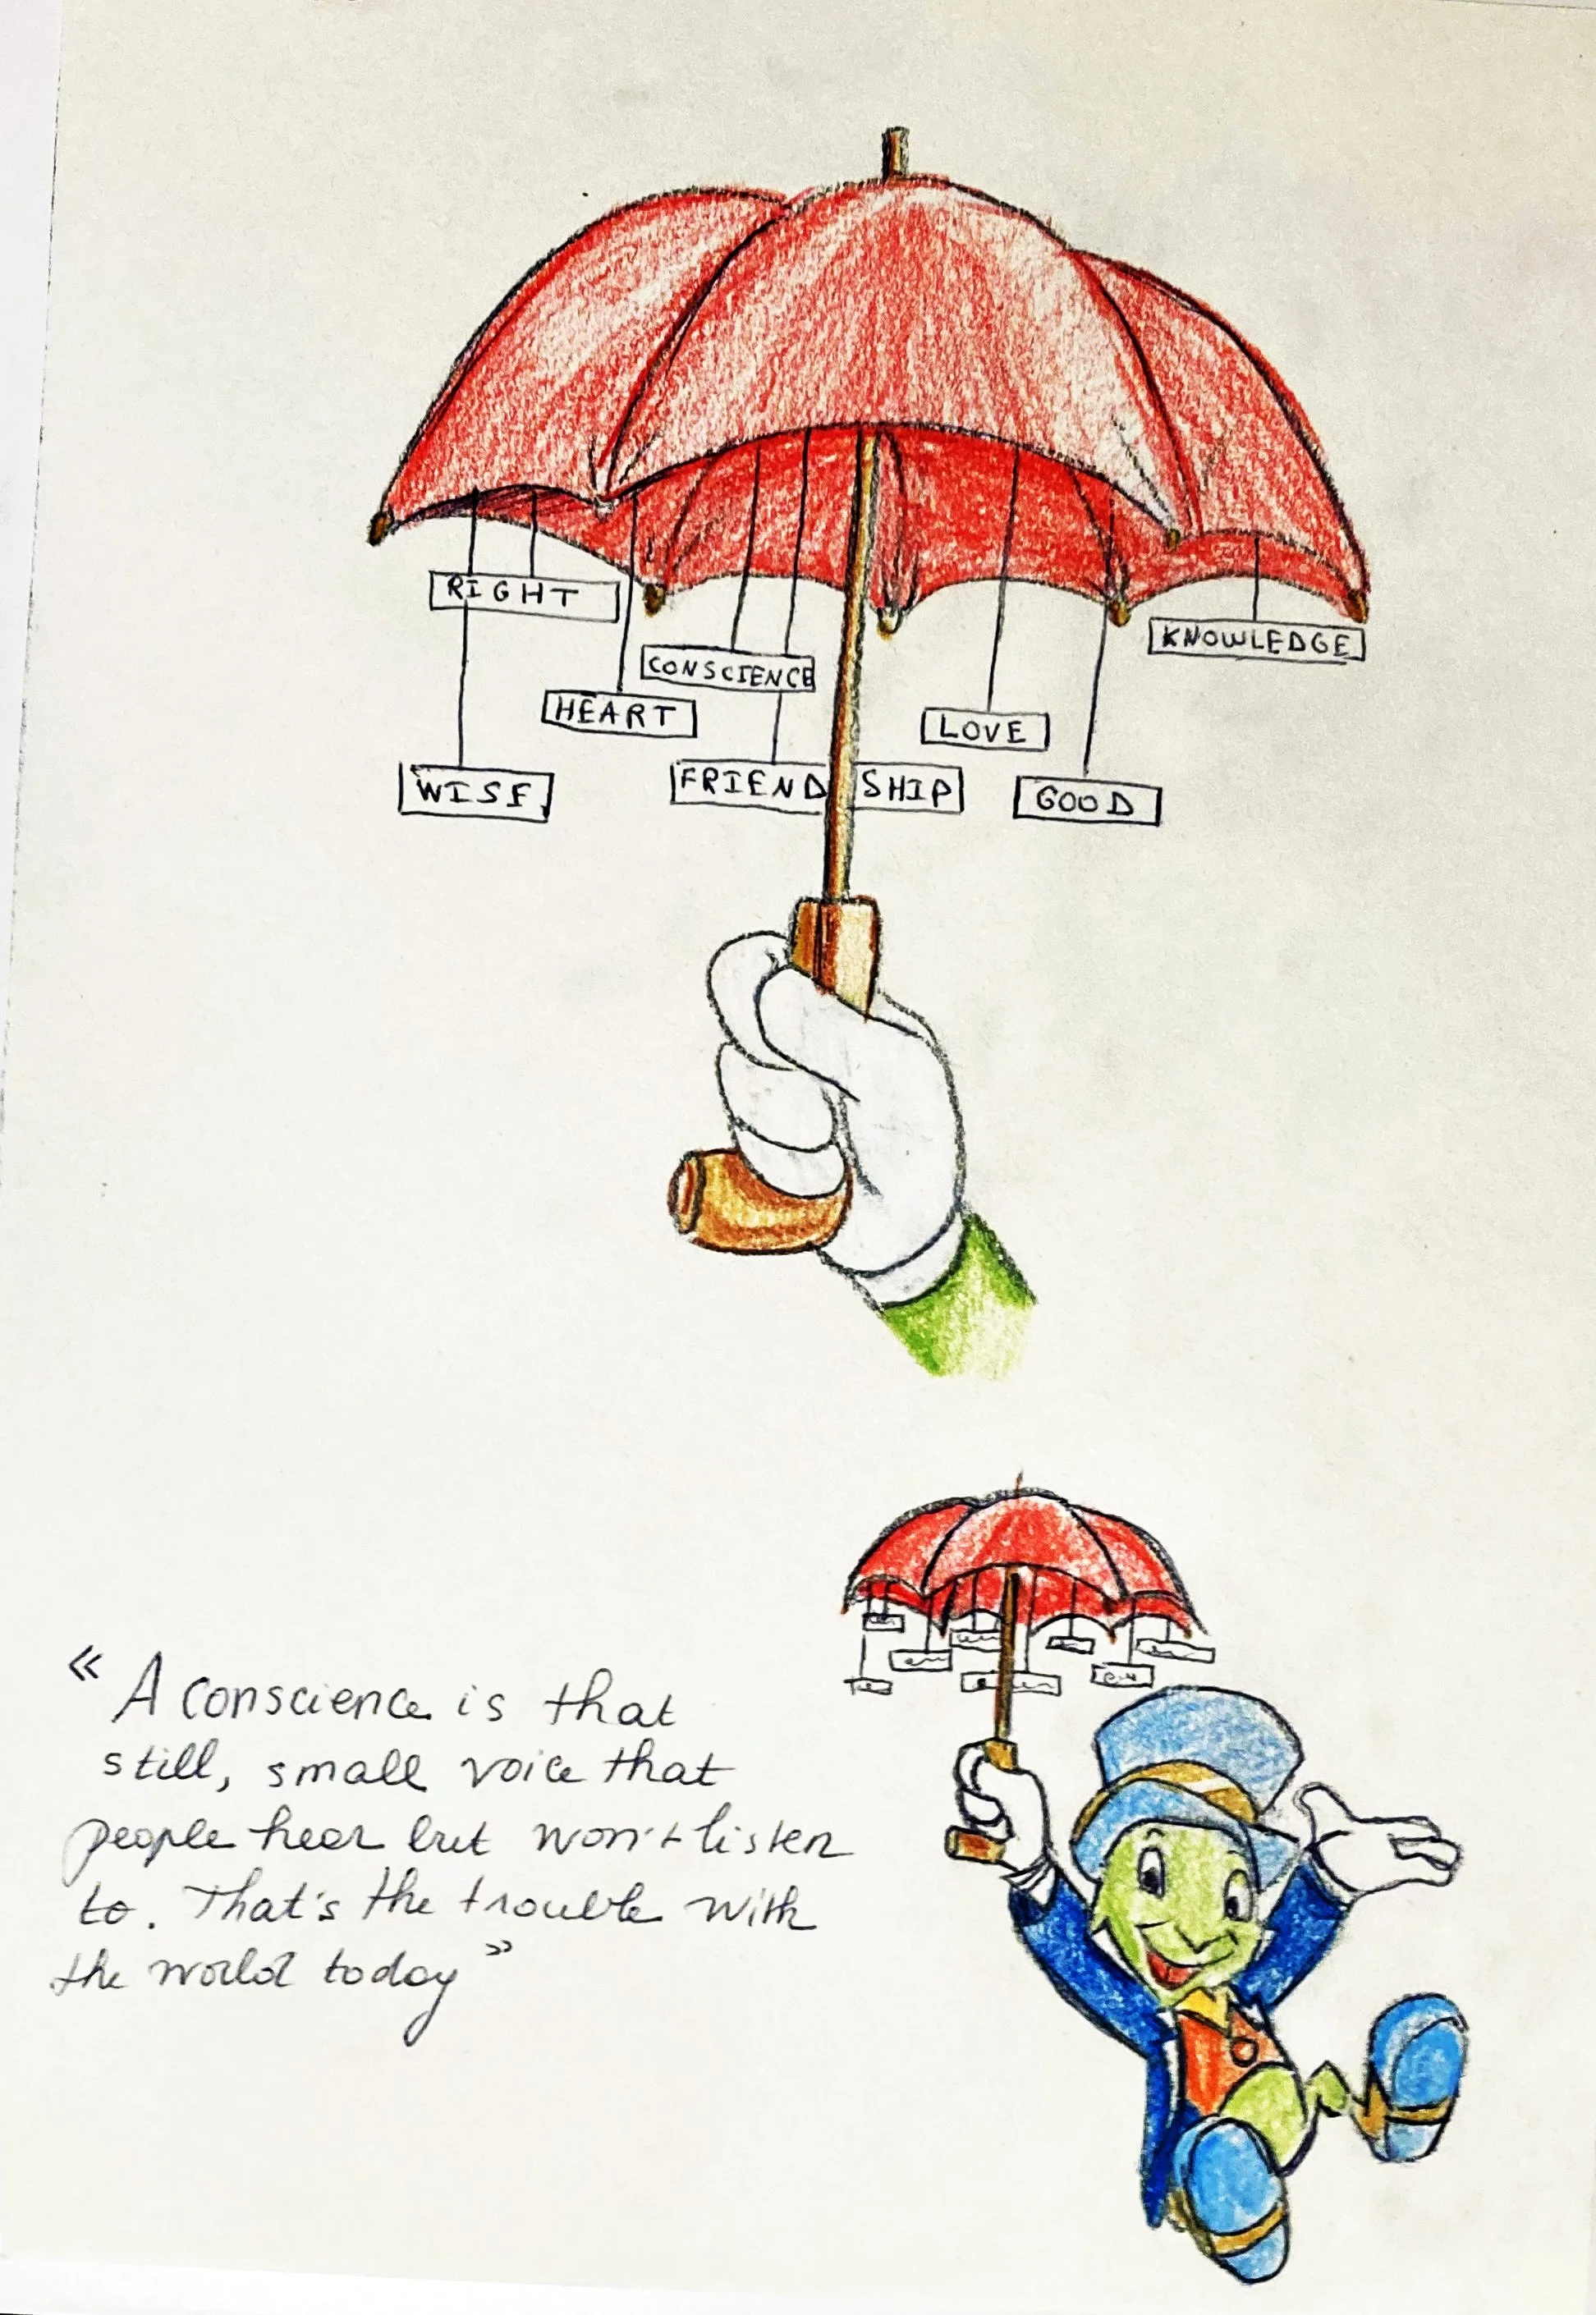 RIGHT
KNOWLEDGE
CONSCIENCE
HEART
LOVE
WISE
FRIENDSHIP
GOOD
« A conscience is that
still, small voice that
people hear but won't listen
to. That's the trouble with
the world today »